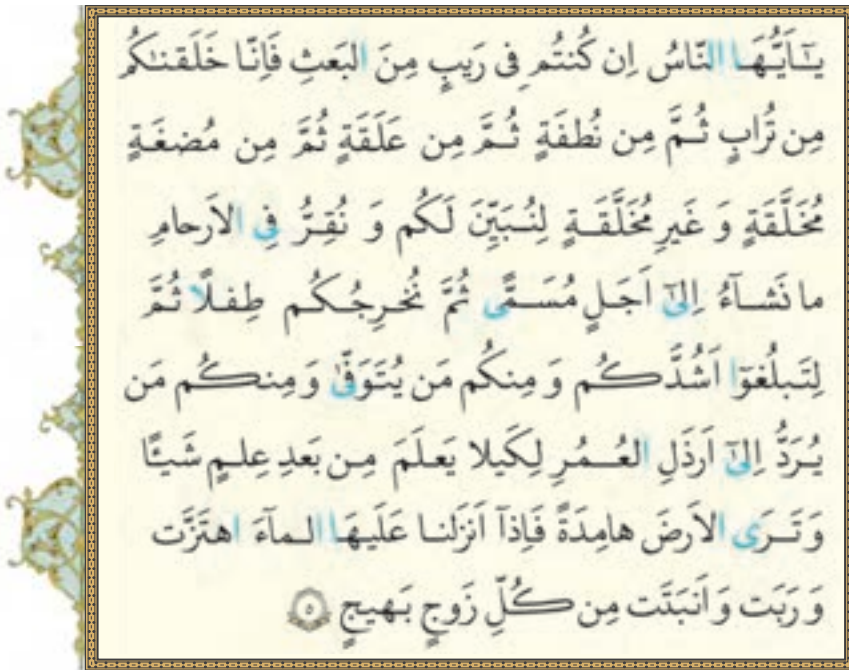 يٰٓاَيُّهَا النّاسُ اِن كُنتُم فى رَيبٍ مِنَ البَعثِ فَاِنّا خَلَقنٰكُم
مِن تُرابٍ ثُمَّ مِن نُطفَةٍ ثُمَّ مِن عَلَقَةٍ ثُمَّ مِن مُضغَةٍ
مُخَلَّقَةٍ وَ غَيرِ مُخَلَّقَةٍ لِنُبَيِّنَ لَكُم وَ نُقِرُّ فِى الاَرحامِ
ما نَشآءُ اِلىٰٓ اَجَلٍ مُسَمًّى ثُمَّ نُخرِجُكُم طِفلًا ثُمَّ
لِتَبلُغوٓا اَشُدَّكُم وَ مِنكُم مَن يُتَوَفّىٰ وَ مِنكُم مَن
يُرَدُّ اِلىٰٓ اَرذَلِ العُمُرِ لِكَيلا يَعلَمَ مِن بَعدِ عِلمٍ شَيـًٔا
وَ تَرَى الاَرضَ هامِدَةً فَاِذآ اَنزَلنا عَلَيهَا المآءَ اهتَزَّت
وَ رَبَت وَ اَنبَتَت مِن كُلِّ زَوجٍ بَهيجٍ ﴿٥﴾